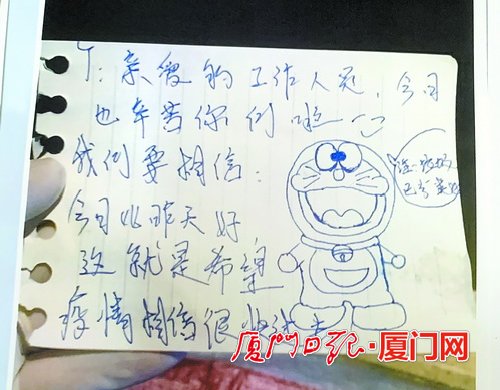 亲爱的工作人员，今日
也辛苦你们啦
我们要相信：
今日比昨天好
这就是希望
疫情相信很快过去
厦门日报·厦门网